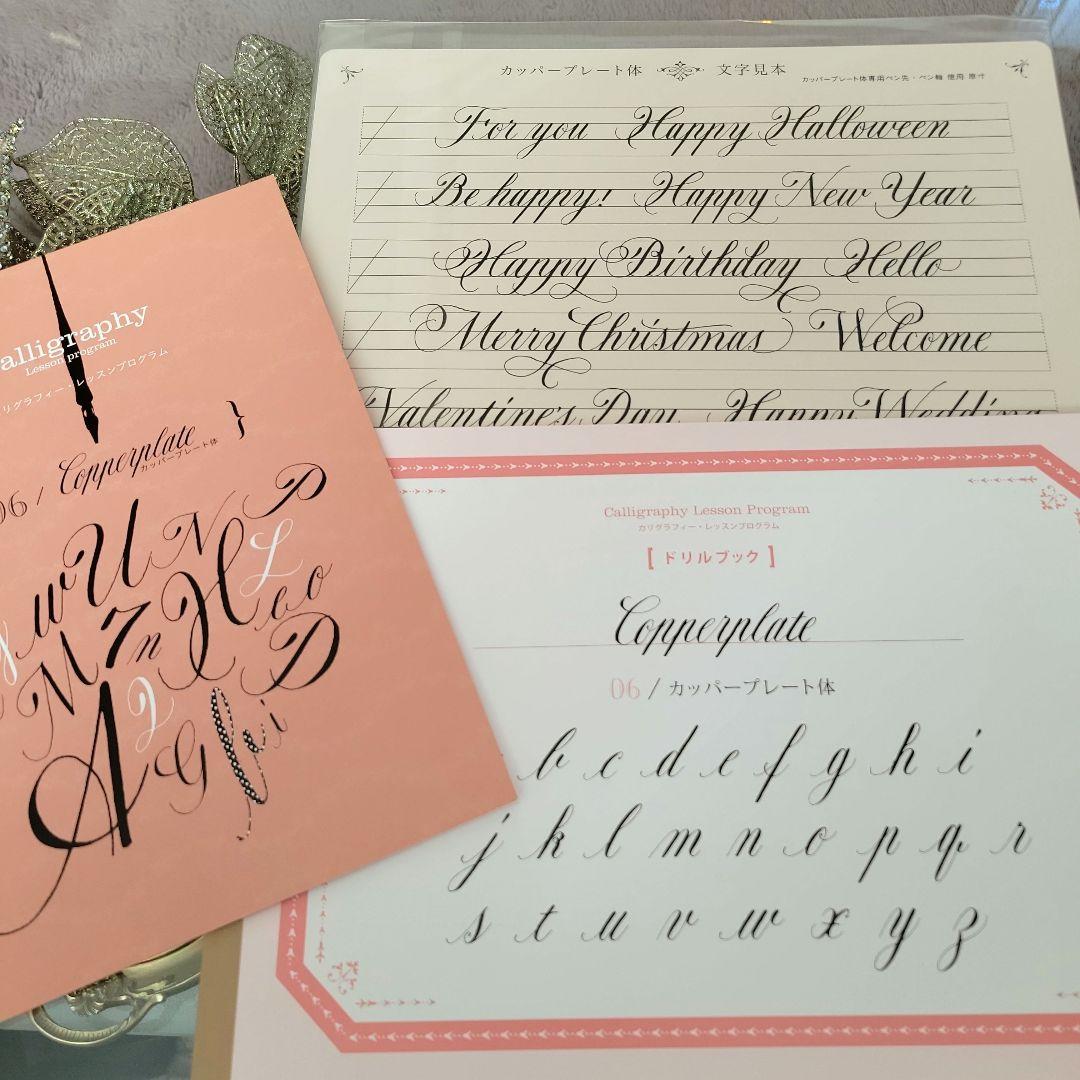 カッパープレート体 文字見本
カッパープレート体専用ペン先・ペン軸 使用 原寸
For you Happy Halloween
Be happy! Happy New Year
Happy Birthday Hello
Merry Christmas Welcome
Valentine's Day Happy Wedding
alligraphy
Lesson program
リグラフィー・レッスンプログラム
06 / Copperplate }
カッパープレート体
w U N P
M 7 n H L o o
A I G D
Calligraphy Lesson Program
カリグラフィー・レッスンプログラム
[ ドリルブック ]
Copperplate
06 / カッパープレート体
b c d e f g h i
j k l m n o p q r
s t u v w x y z